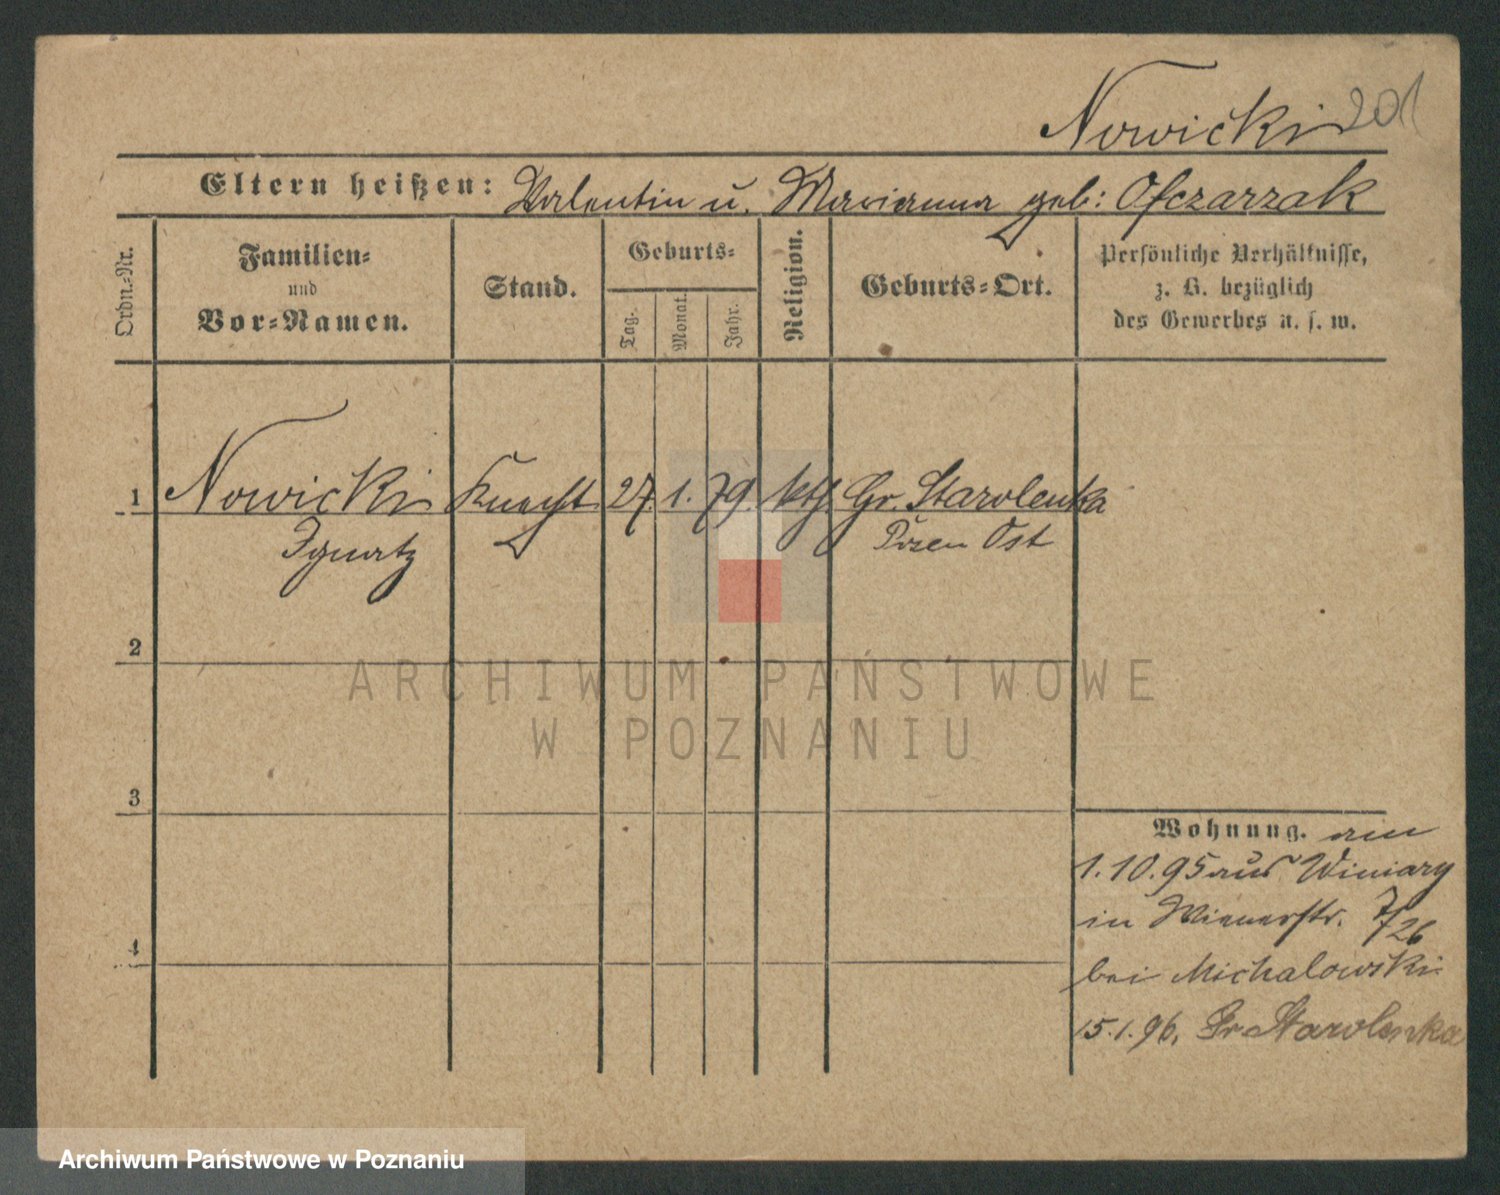 Nowicki 201
Eltern heißen: Valentin u. Marianna geb: Ofczarzak
Ordn.-Nr.
Familien-
und
Vor-Namen.
Stand.
Geburts-
Tag.
Monat.
Jahr.
Religion.
Geburts-Ort.
Persönliche Verhältnisse,
z. B. bezüglich
des Gewerbes u. s. w.
1 Nowicki Knecht 27. 1. 79. kth Gr. Starolenka
Ignatz Posen Ost
2
ARCHIWUM PAŃSTWOWE
W POZNANIU
3
Wohnung. am
1.10.95 aus Winiary
in Wienerstr. 7/26
4
bei Michalowski
15.1.96. Gr Starolenka
Archiwum Państwowe w Poznaniu